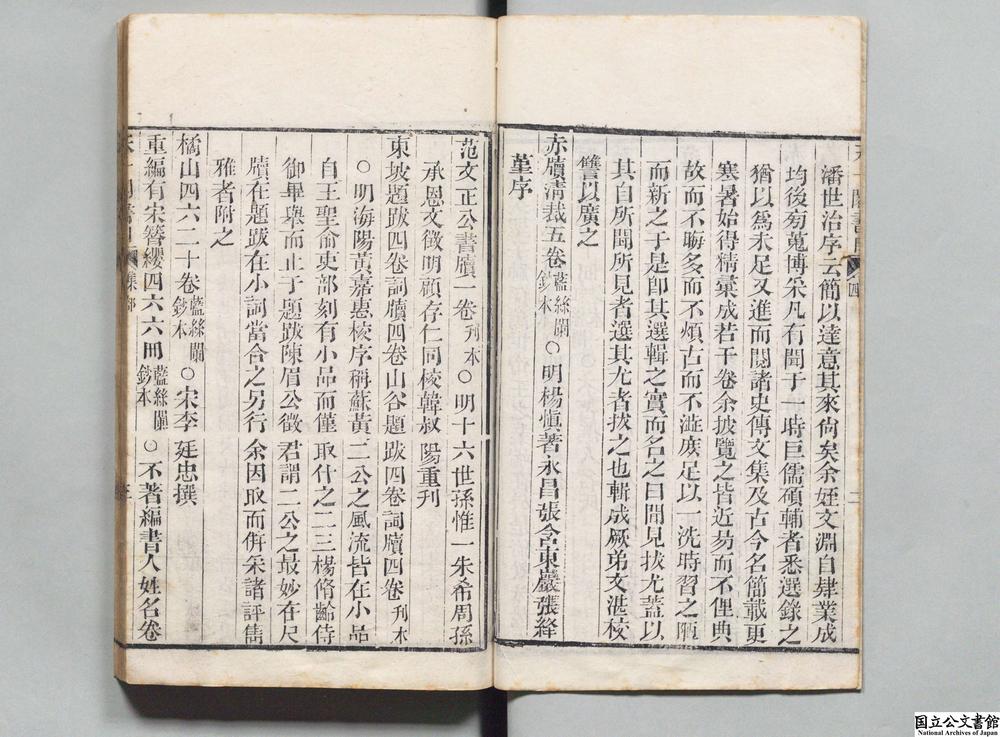 潘世治序云簡以達意其來尙矣余姪文淵自肆業成
均後旁蒐博采凡有聞于一時巨儒碩輔者悉選錄之
猶以爲未足又進而閱諸史傳文集及古今名簡載更
寒暑始得精彙成若干卷余披覽之皆近易而不俚典
故而不晦多而不煩古而不澁庶足以一洗時習之陋
而新之于是卽其選輯之實而名之曰聞見拔尤蓋以
其自所聞所見者選其尤者拔之也輯成厥弟文湛校
讐以廣之
赤牘淸裁五卷藍絲闌鈔本○明楊愼著永昌張含東巖張絳
菫序
范文正公書牘一卷刋本○明十六世孫惟一朱希周孫
承恩文徵明顧存仁同棱韓叔陽重刋
東坡題跋四卷詞牘四卷山谷題跋四卷詞牘四卷刋本
○明海陽黃嘉惠棱序稱蘇黃二公之風流皆在小品
自王聖俞吏部刻有小品而僅取什之二三楊脩齡侍
御畢舉而止于題跋陳眉公徵君謂二公之最妙在尺
牘在題跋在小詞當合之另行余因取而倂采諸評雋
雅者附之
橘山四六二十卷藍絲闌鈔本○宋李廷忠撰
重編有宋簪纓四六六冊藍絲闌鈔本○不著編書人姓名卷
国立公文書館
National Archives of Japan